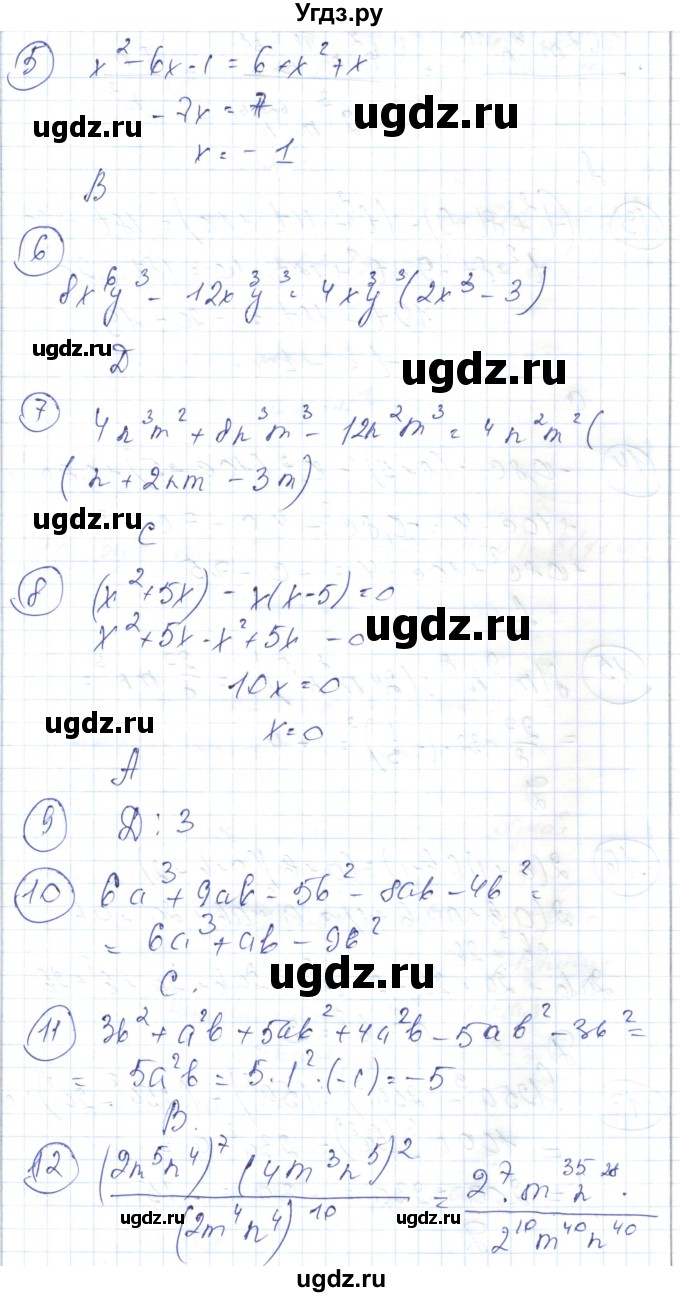 Угдз.ру
5 x² - 6x - 1 = 6 + x² + x
- 7x = 7
x = - 1
ugdz.ru ugdz.ru
B
6
8x⁶y³ - 12x³y³ = 4x³y³(2x³ - 3)
ugdz.ru ugdz.ru
Д
7 4n³m² + 8n³m³ - 12n²m³ = 4n²m²(
(n + 2nm - 3m)
ugdz.ru
C
8 (x² + 5x) - x(x - 5) = 0
ugdz.ru
x² + 5x - x² + 5x = 0
10x = 0
ugdz.ru
x = 0
A
9 Д: 3
10 6a³ + 9ab - 5b² - 8ab - 4b² =
= 6a³ + ab - 9b²
ugdz.ru
C.
11 3b² + a²b + 5ab² + 4a²b - 5ab² - 3b² =
= 5a²b = 5·1²·(-1) = -5
B.
12 (2m⁵n⁴)⁷ (4m³n⁵)² / (2m⁴n⁴)¹⁰ = 2⁷·m³⁵n²⁸· / 2¹⁰m⁴⁰n⁴⁰
ugdz.ru ugdz.ru
ugdz.ru